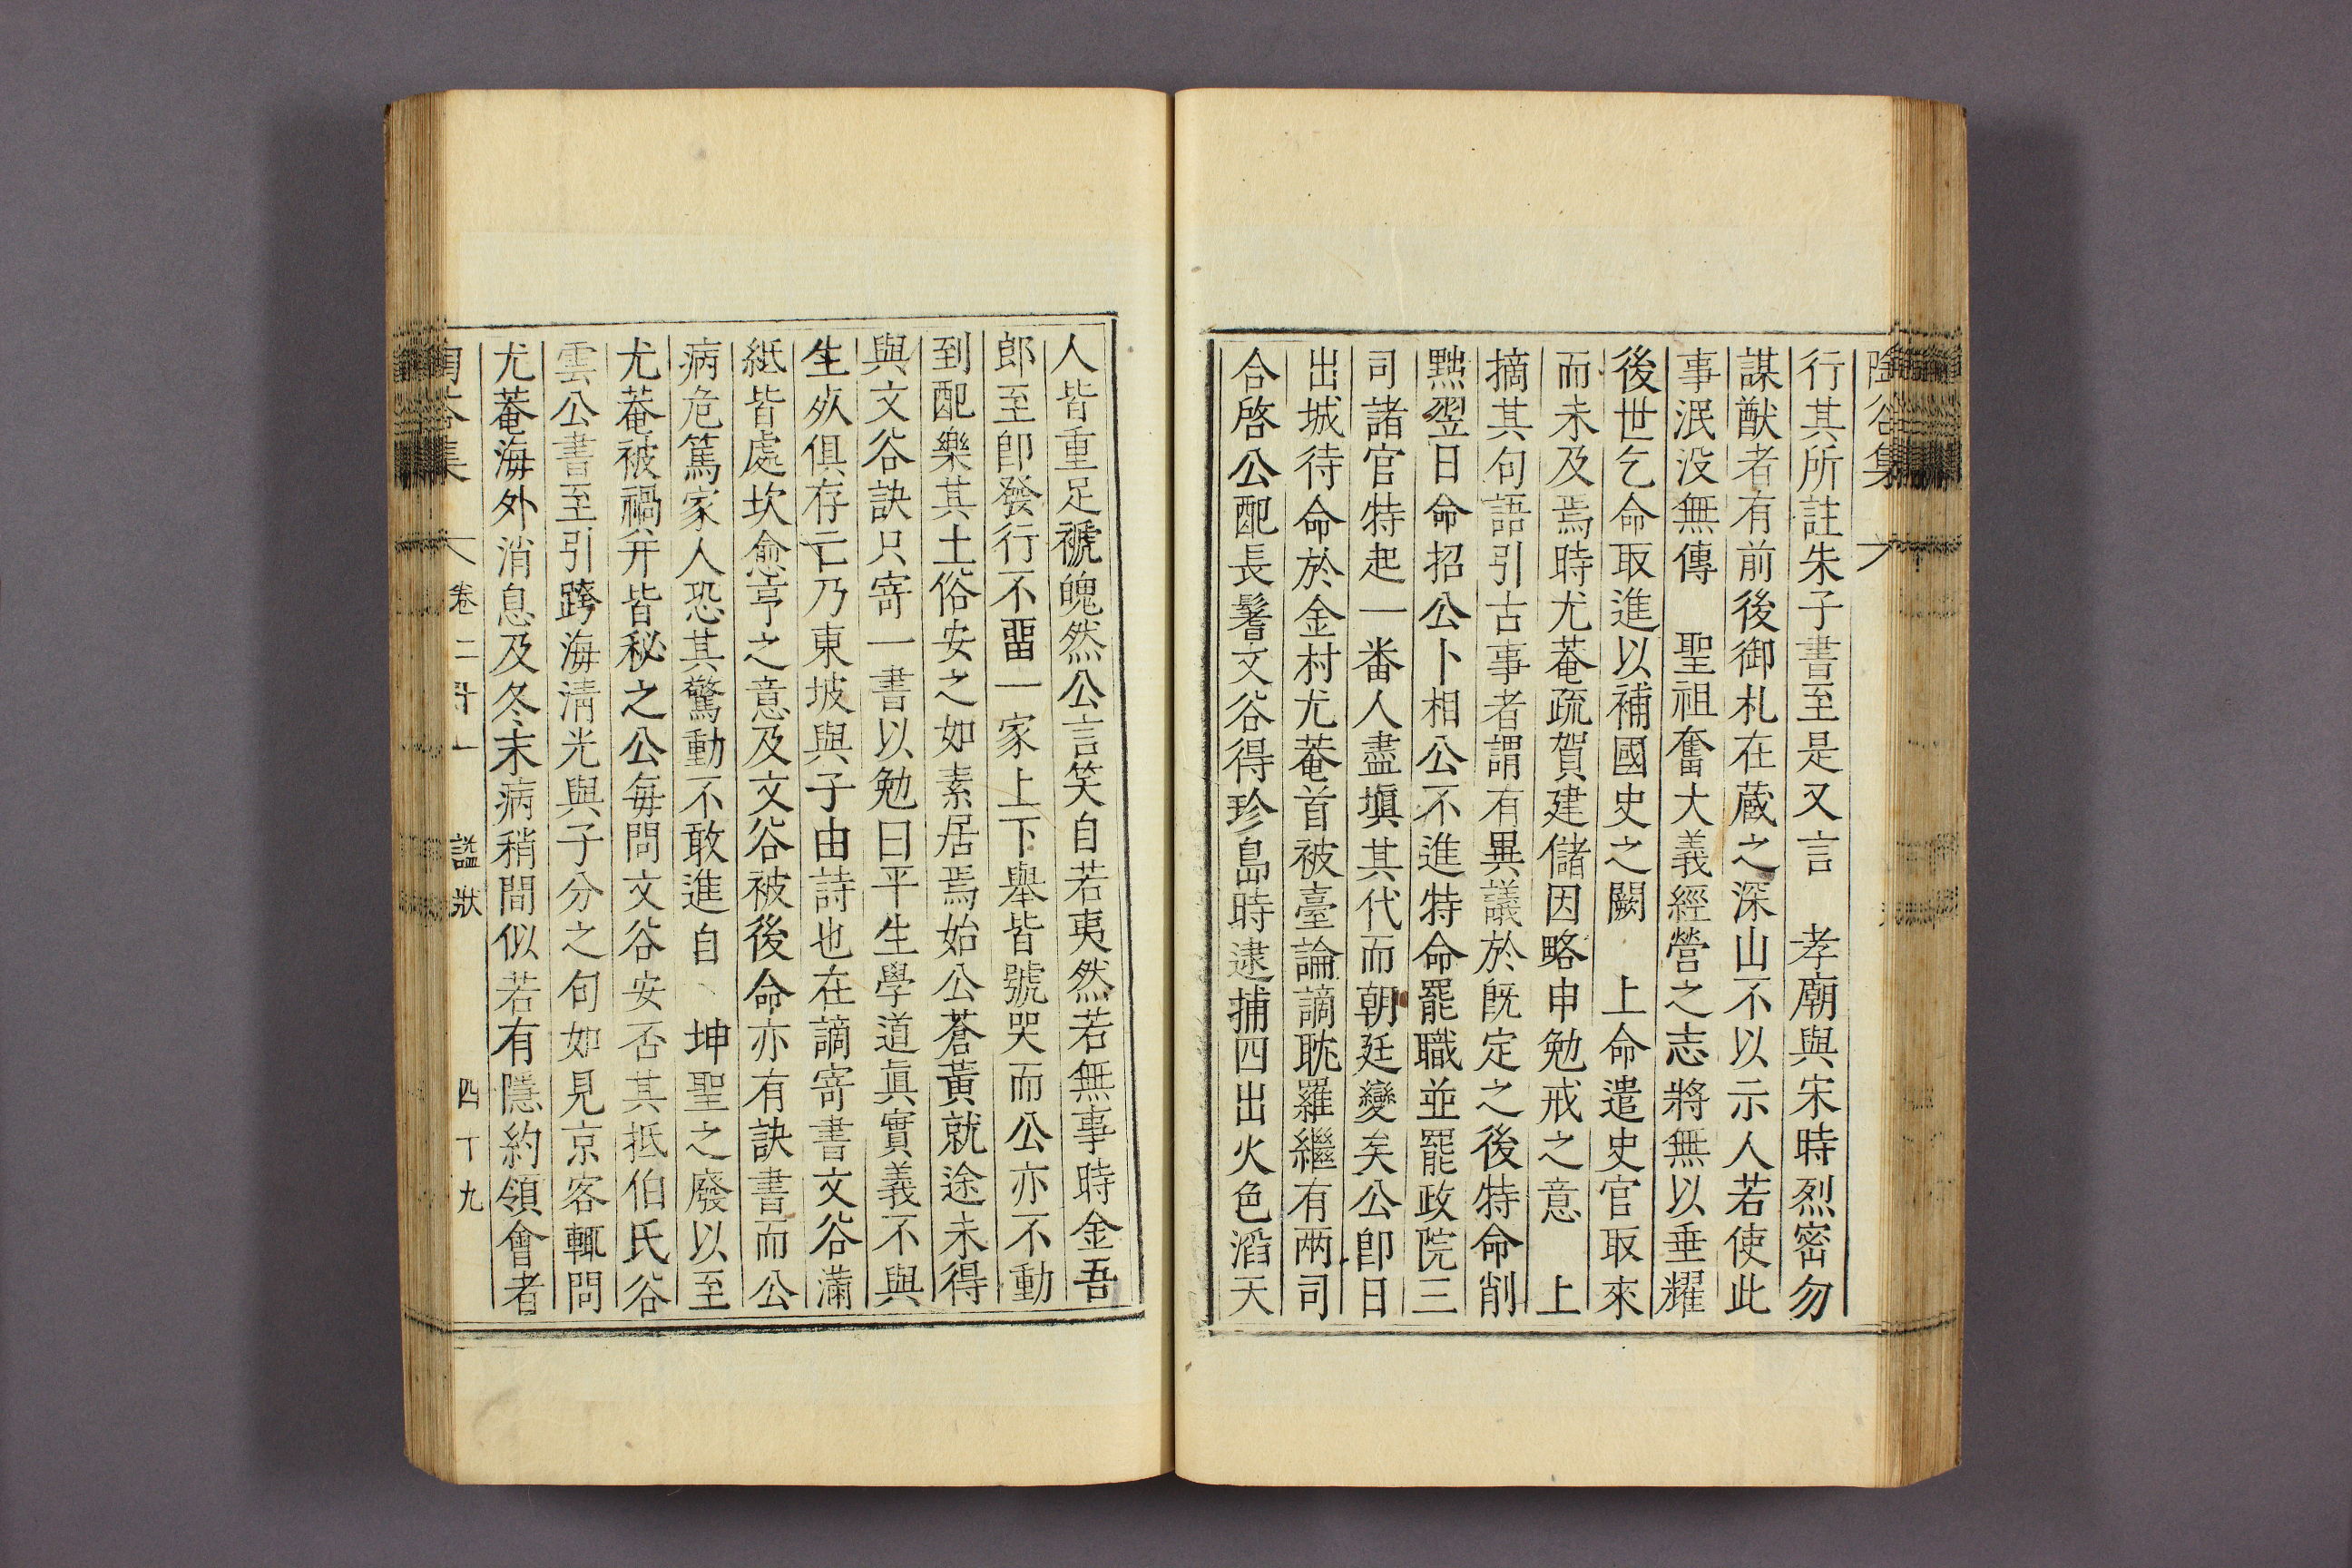 陶谷集
行其所註朱子書至是又言　孝廟與宋時烈密勿
謀猷者有前後御札在蔵之深山不以示人若使此
事泯没無傳　聖祖奮大義經營之志將無以垂耀
後世乞命取進以補國史之闕　上命遣史官取來
而未及焉時尤菴疏賀建儲因略申勉戒之意　上
摘其句語引古事者謂有異議於旣定之後特命削
黜翌日命招公卜相公不進特命罷職並罷政院三
司諸官特起一番人盡塡其代而朝廷變矣公卽日
出城待命於金村尤菴首被臺論謫耽羅繼有兩司
合啓公配長鬐文谷得珍島時逮捕四出火色滔天
人皆重足褫魄然公言笑自若夷然若無事時金吾
郎至卽發行不畱一家上下擧皆號哭而公亦不動
到配樂其土俗安之如素居焉始公蒼黃就途未得
與文谷訣只寄一書以勉曰平生學道眞實義不與
生死俱存亡乃東坡與子由詩也在謫寄書文谷滿
紙皆處坎愈亨之意及文谷被後命亦有訣書而公
病危篤家人恐其驚動不敢進自　坤聖之廢以至
尤菴被禍幷皆秘之公每問文谷安否其抵伯氏谷
雲公書至引跨海淸光與子分之句如見京客輒問
尤菴海外消息及冬末病稍間似若有隱約領會者
陶谷集　卷二十一　諡狀　四十九